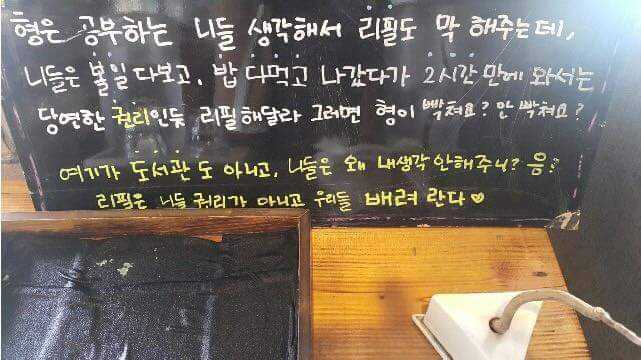 형은 공부하는 니들 생각해서 리필도 막 해주는데,
니들은 볼일 다보고, 밥 다먹고 나갔다가 2시간만에 와서는
당연한 권리인듯 리필해달라 그러면 형이 빡쳐요? 안 빡쳐요?
여기가 도서관도 아니고, 니들은 왜 내생각 안해주니? 응?
리필은 니들 권리가 아니고 우리들 배려란다♥